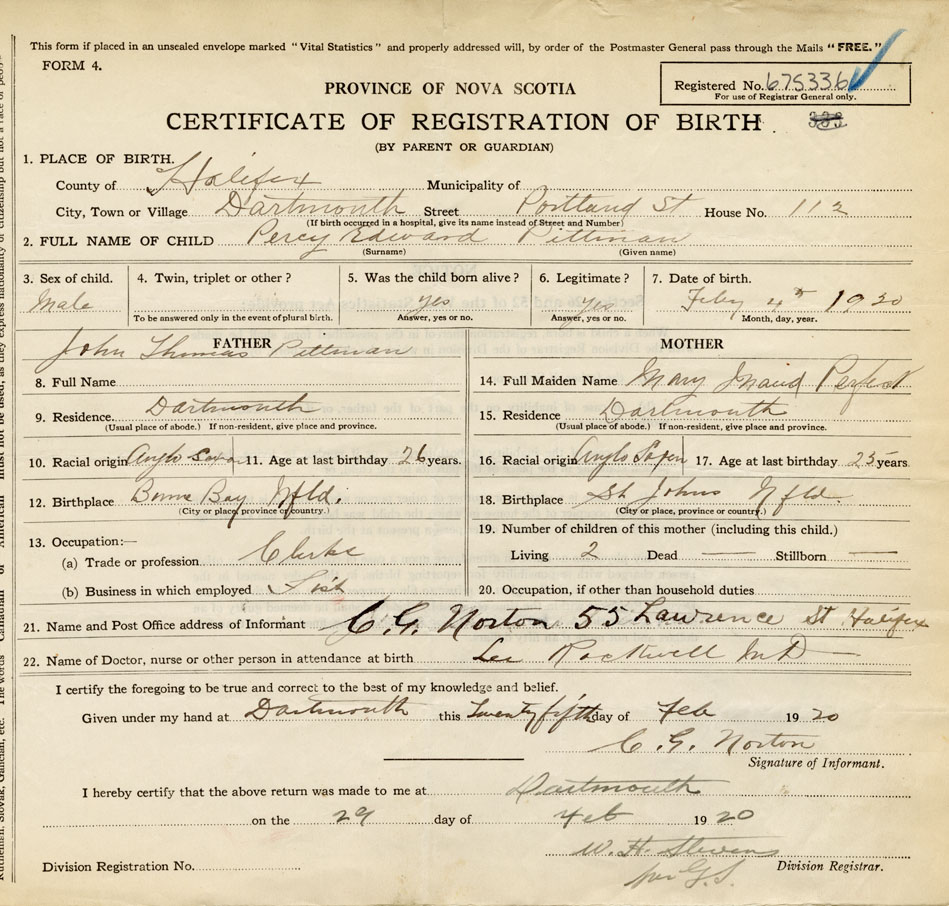 This form if placed in an unsealed envelope marked "Vital Statistics" and properly addressed will, by order of the Postmaster General pass through the Mails "FREE."
FORM 4.
Registered No. 675336
For use of Registrar General only.
PROVINCE OF NOVA SCOTIA
CERTIFICATE OF REGISTRATION OF BIRTH
(BY PARENT OR GUARDIAN)
1. PLACE OF BIRTH.
County of Halifax Municipality of
City, Town or Village Dartmouth Street Portland St House No. 112
(If birth occurred in a hospital, give its name instead of Street and Number)
2. FULL NAME OF CHILD Percy Edward Pittman
(Surname) (Given name)
3. Sex of child. 4. Twin, triplet or other? 5. Was the child born alive? 6. Legitimate? 7. Date of birth.
Male yes yes Feby 4th 1920
To be answered only in the event of plural birth. Answer, yes or no. Answer, yes or no. Month, day, year.
FATHER MOTHER
John Thomas Pittman
8. Full Name 14. Full Maiden Name Mary Maud Perfect
9. Residence. Dartmouth 15. Residence Dartmouth
(Usual place of abode.) If non-resident, give place and province. (Usual place of abode.) If non-resident, give place and province.
10. Racial origin Anglo Saxon 11. Age at last birthday 26 years. 16. Racial origin Anglo Saxon 17. Age at last birthday 25 years.
12. Birthplace Bonne Bay Nfld. 18. Birthplace St Johns Nfld.
(City or place, province or country.) (City or place, province or country.)
19. Number of children of this mother (including this child.)
13. Occupation:—
(a) Trade or profession Clerke Living 2 Dead — Stillborn —
(b) Business in which employed 20. Occupation, if other than household duties
21. Name and Post Office address of Informant C. G. Norton 55 Lawrence St Halifax
22. Name of Doctor, nurse or other person in attendance at birth Rockwell M D
I certify the foregoing to be true and correct to the best of my knowledge and belief.
Given under my hand at Dartmouth this Twenty fifth day of Feb 1920
C. G. Norton
Signature of Informant.
I hereby certify that the above return was made to me at Dartmouth
on the 29 day of Feb 1920
W. H. Stevens
per G.S.
Division Registration No. Division Registrar.